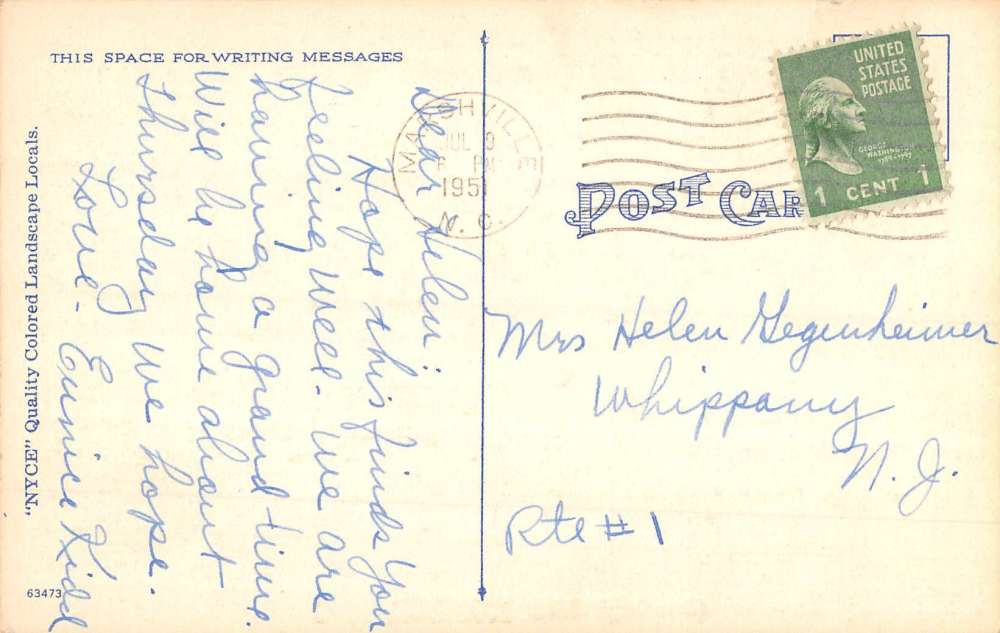 THIS SPACE FOR WRITING MESSAGES
Dear Helen,
Hope this finds you
feeling well. We are
having a grand time.
Will be home about
Thursday we hope.
Love - Eunice Kidd
"NYCE" Quality Colored Landscape Locals.
63473
JUL 9
PM
195
N. C.
UNITED
STATES
POSTAGE
GEORGE
WASHINGTON
1789-1797
1 CENT 1
POST CAR
Mrs Helen Gegenheimer
Whippany
N. J.
Rte #1